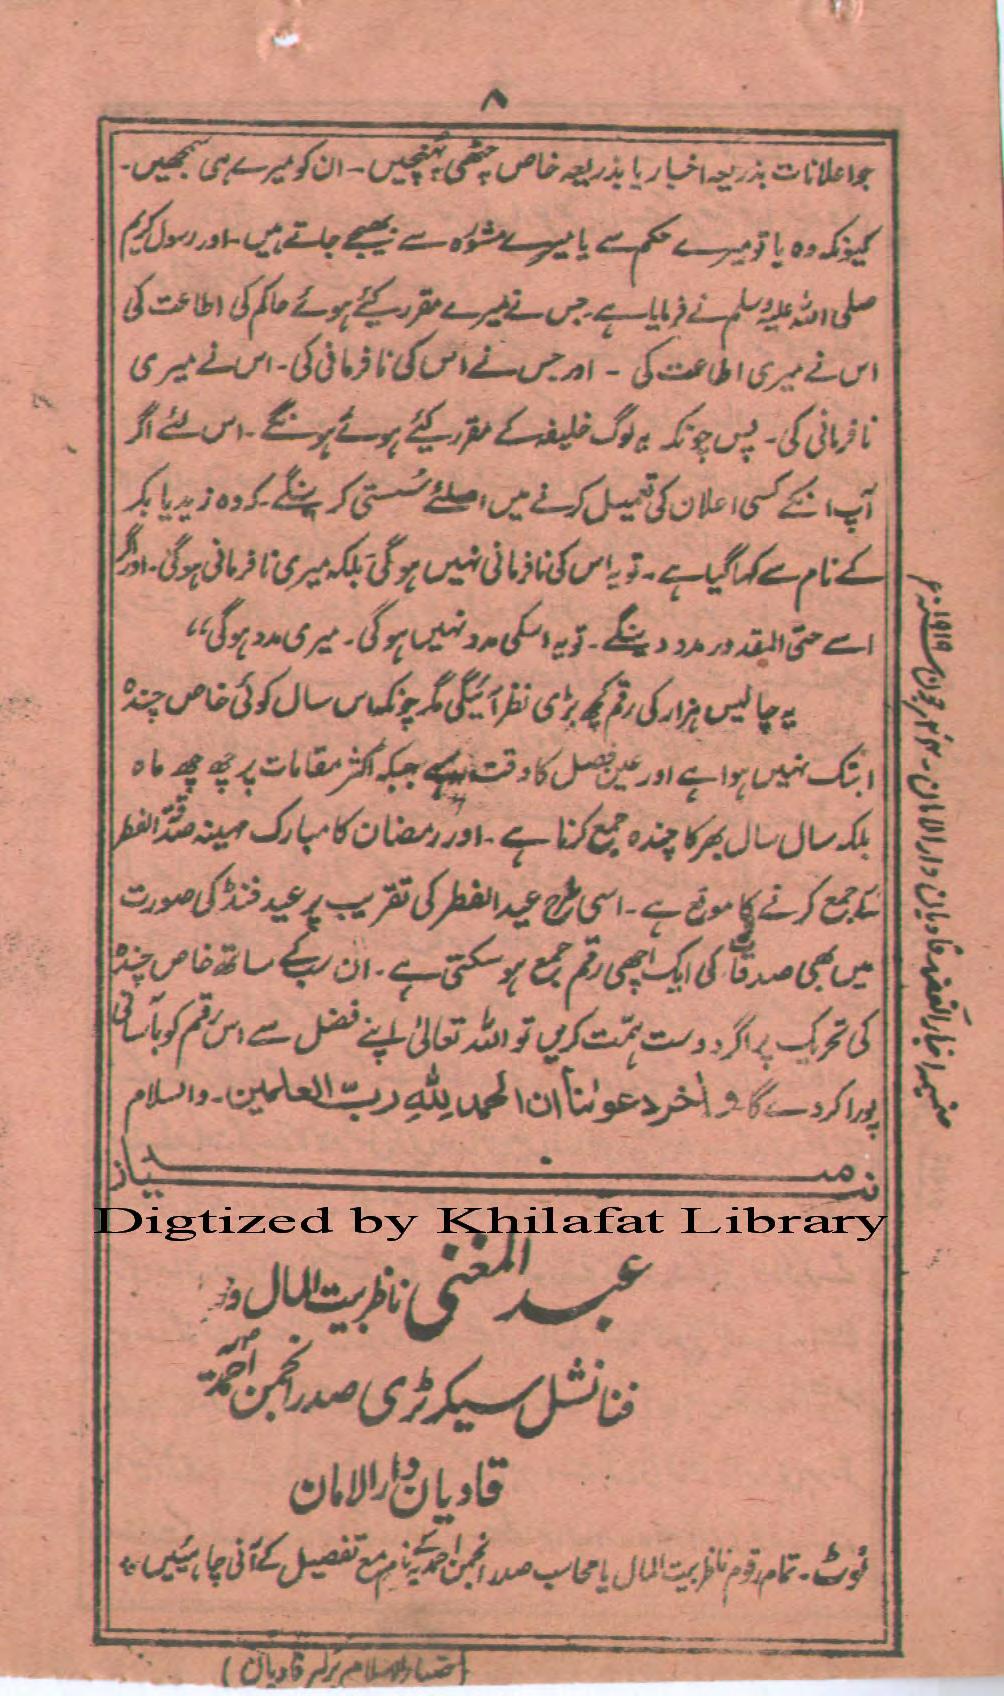 ۸
جو اعلانات بذریعہ اخبار یا بذریعہ خاص چٹھی پہنچیں۔ ان کو میرے ہی سمجھیں۔
کیونکہ وہ یا تو میرے حکم سے یا میرے مشورہ سے بھیجے جاتے ہیں۔ اور رسول کریم
صلی اللہ علیہ وسلم نے فرمایا ہے۔ جس نے میرے مقرر کئے ہوئے حاکم کی اطاعت کی
اس نے میری اطاعت کی ۔ اور جس نے اس کی نافرمانی کی۔ اس نے میری
نافرمانی کی۔ پس چونکہ یہ لوگ خلیفہ کے مقرر کئے ہوئے ہونگے۔ اس لئے اگر
آپ انکے کسی اعلان کی تعمیل کرنے میں اسلئے سُستی کرینگے۔ کہ وہ زید یا بکر
کے نام سے کہا گیا ہے۔ تو یہ اس کی نافرمانی نہیں ہوگی بلکہ میری نافرمانی ہوگی۔ اور اگر
اسے حتی المقدور مدد دینگے۔ تو یہ اسکی مدد نہیں ہوگی۔ میری مدد ہوگی،،
یہ چالیس ہزار کی رقم کچھ بڑی نظر آئیگی مگر چونکہ اس سال کوئی خاص چندہ
ابتک نہیں ہوا ہے اور عین فصل کا وقت ہے جبکہ اکثر مقامات پر چھ چھ ماہ
بلکہ سال سال بھر کا چندہ جمع کرنا ہے۔ اور رمضان کا مبارک مہینہ صدقۃ الفطر
کے جمع کرنے کا موقع ہے۔ اسی طرح عید الفطر کی تقریب پر عید فنڈ کی صورت
میں بھی صدقات کی ایک اچھی رقم جمع ہو سکتی ہے۔ ان سب کے ساتھ خاص چندہ
کی تحریک پر اگر دوست ہمّت کریں تو اللہ تعالیٰ اپنے فضل سے اس رقم کو بآسانی
پورا کر دے گا۔ و اٰخر دعوٰنا ان الحمد للّٰهِ ربّ العلمین۔ والسلام
نیازمند
Digtized by Khilafat Library
عبد المغنی ناظر بیت المال و
فنانشل سیکرٹری صدر انجمن احمدیہ
قادیان دارالامان
نوٹ۔ تمام رقوم ناظر بیت المال یا محاسب صدر انجمن احمدیہ کے نام مع تفصیل کے آنی چاہئیں۔
ضمیمہ اخبار الفضل قادیان دارالامان۔ جون ۱۹۱۹ء
(ضیاء الاسلام پریس قادیان)